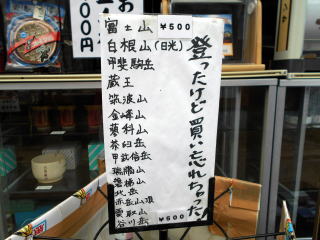 登ったけど買い忘れちゃった
富士山 ￥500
白根山(日光)
甲斐駒岳
蔵王
筑波山
金峰山
蓼科山
茶臼岳
甲武信岳
瑞牆山
磐梯山
北岳
赤岳山頂
雲取山
谷川岳 ￥500
00円